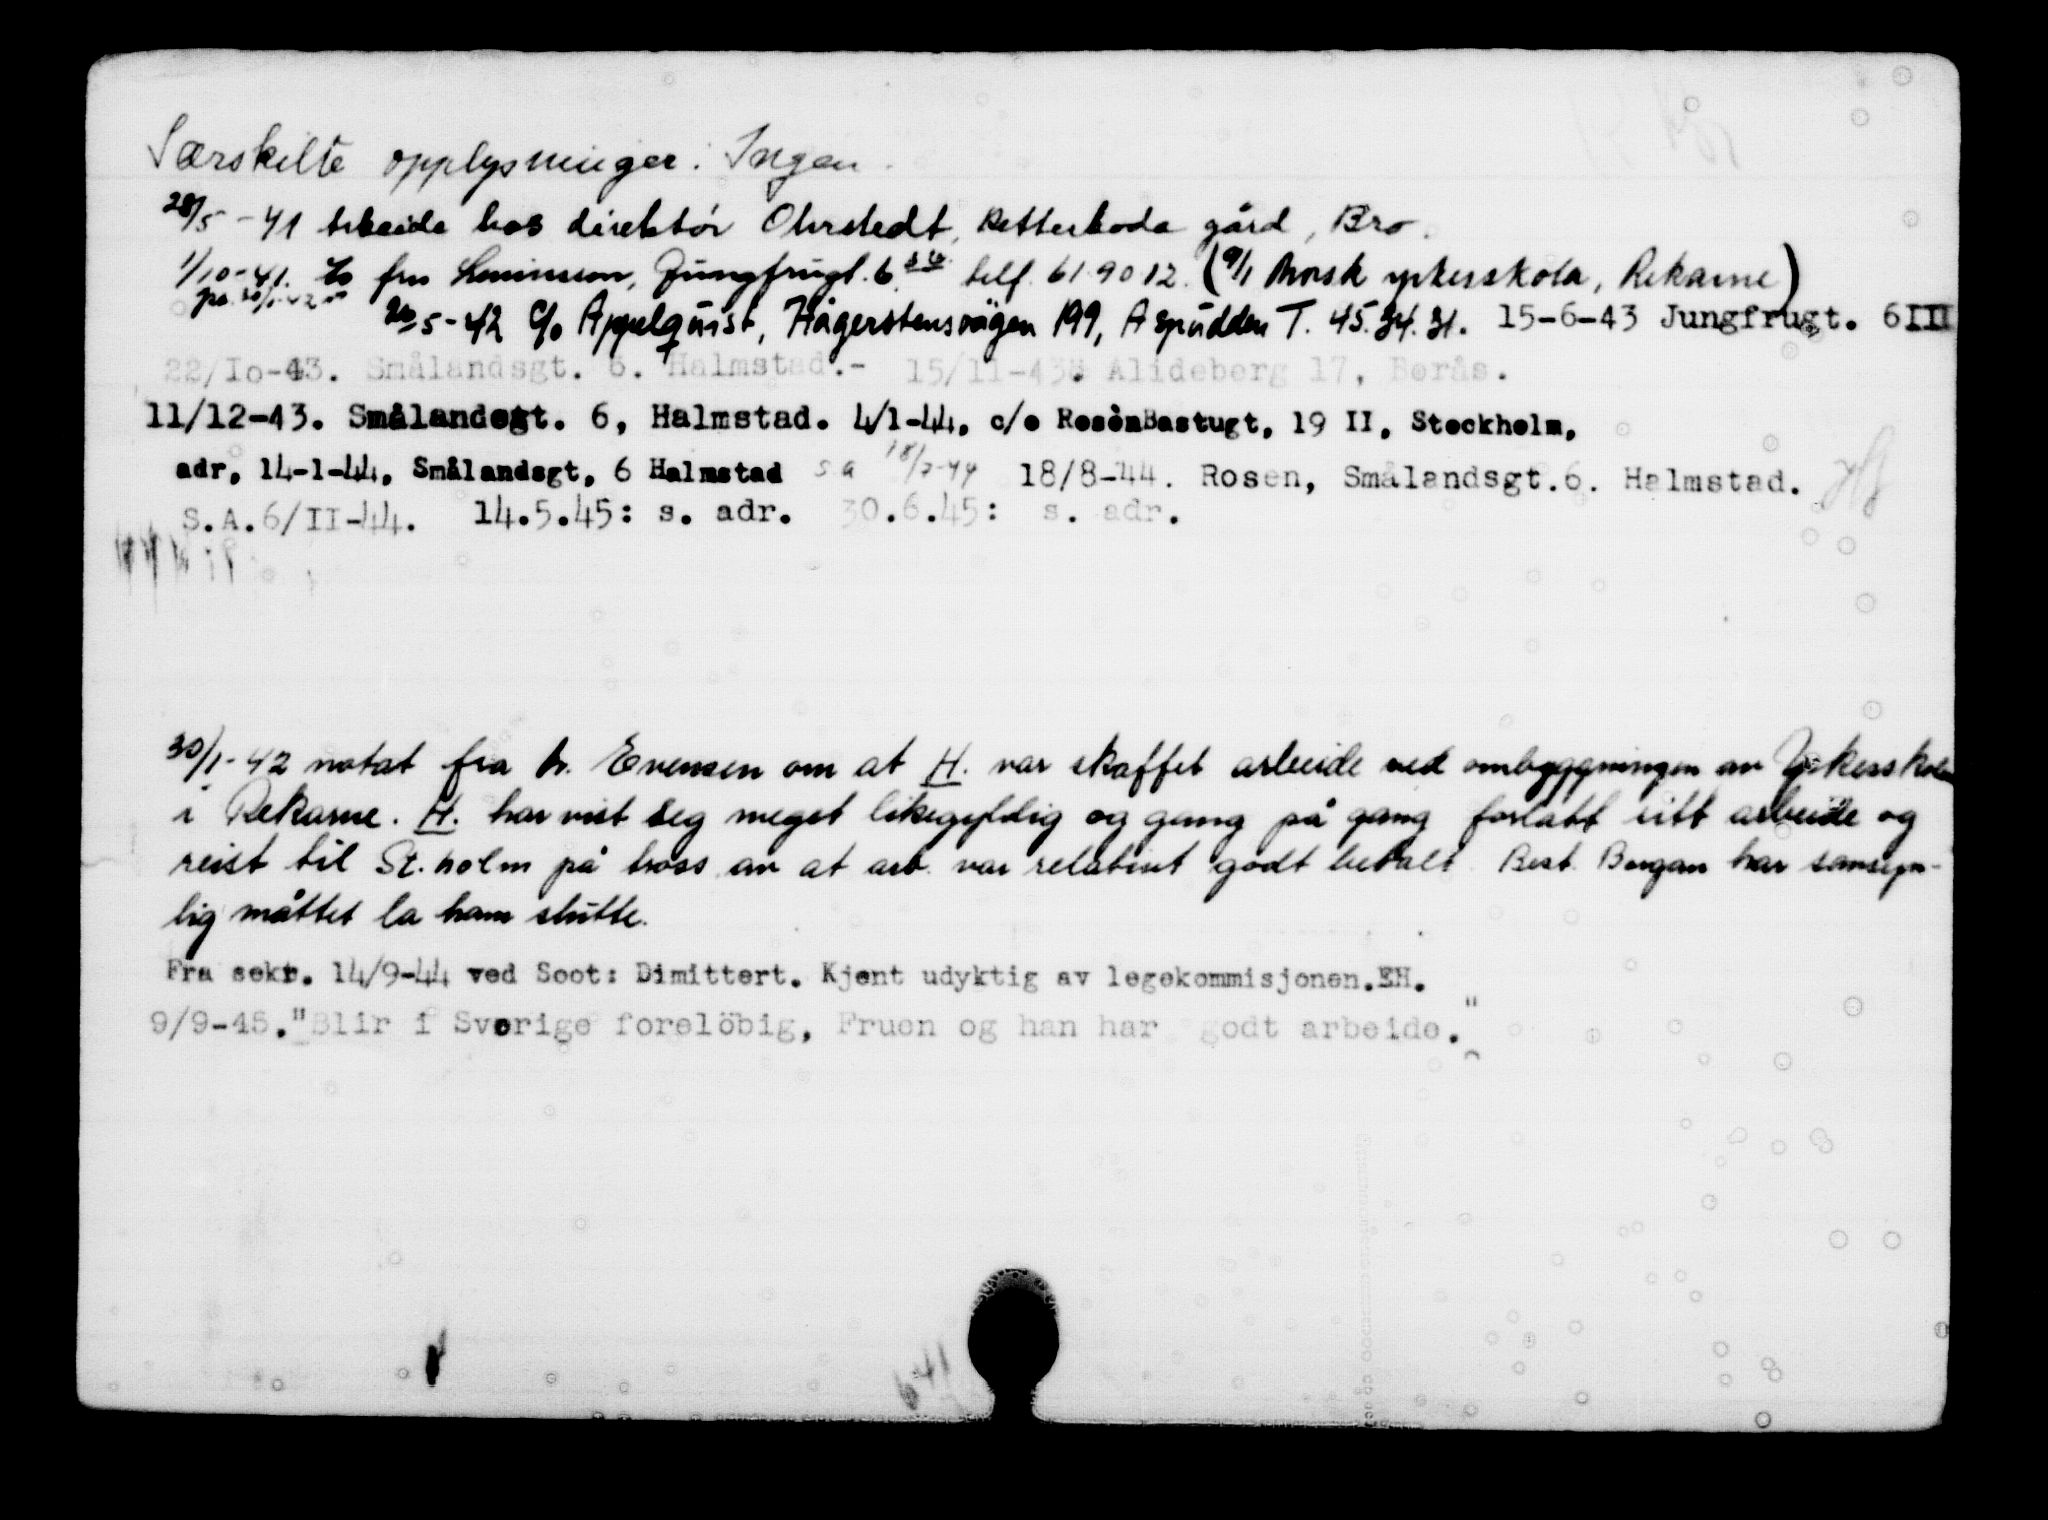 Særskilte opplysninger: Ingen.
28/5-41 Arbeide hos direktör Ohrstedt, gård, Bro.
1/10-41. c/o fru Jungfrugt. 6 telf. 619012. (9/1 Norsk yrkesskola, Rekarne)
20/5-42 c/o Appelquist, Hägerstensvägen 199, Aspudden T. 45.34.31. 15-6-43 Jungfrugt. 6III
22/Io-43. Smålandsgt. 6. Halmstad.- 15/11-43: Alideberg 17, Borås.
11/12-43. Smålandsgt. 6, Halmstad. 4/1-44, c/o Rosèn Bastugt, 19 II, Stockholm,
adr, 14-1-44, Smålandsgt, 6 Halmstad s a 18/7-44 18/8-44. Rosen, Smålandsgt.6. Halmstad.
S.A.6/II-44. 14.5.45: s. adr. 30.6.45: s. adr.
30/1-42 notat fra h. Evensen om at H. var skaffet arbeide ved ombyggningen av Yrkesskolen
i Rekarne. H. har vist seg meget likegyldig og gang på gang forlatt sitt arbeide og
reist til St.holm på tross av at arb. var relativt godt betalt. Best. Bergan har sansyn-
lig måttet la ham slutte.
Fra sekr. 14/9-44 ved Soot: Dimittert. Kjent udyktig av legekommisjonen.EH.
9/9-45."Blir i Sverige forelöbig, Fruen og han har godt arbeide."